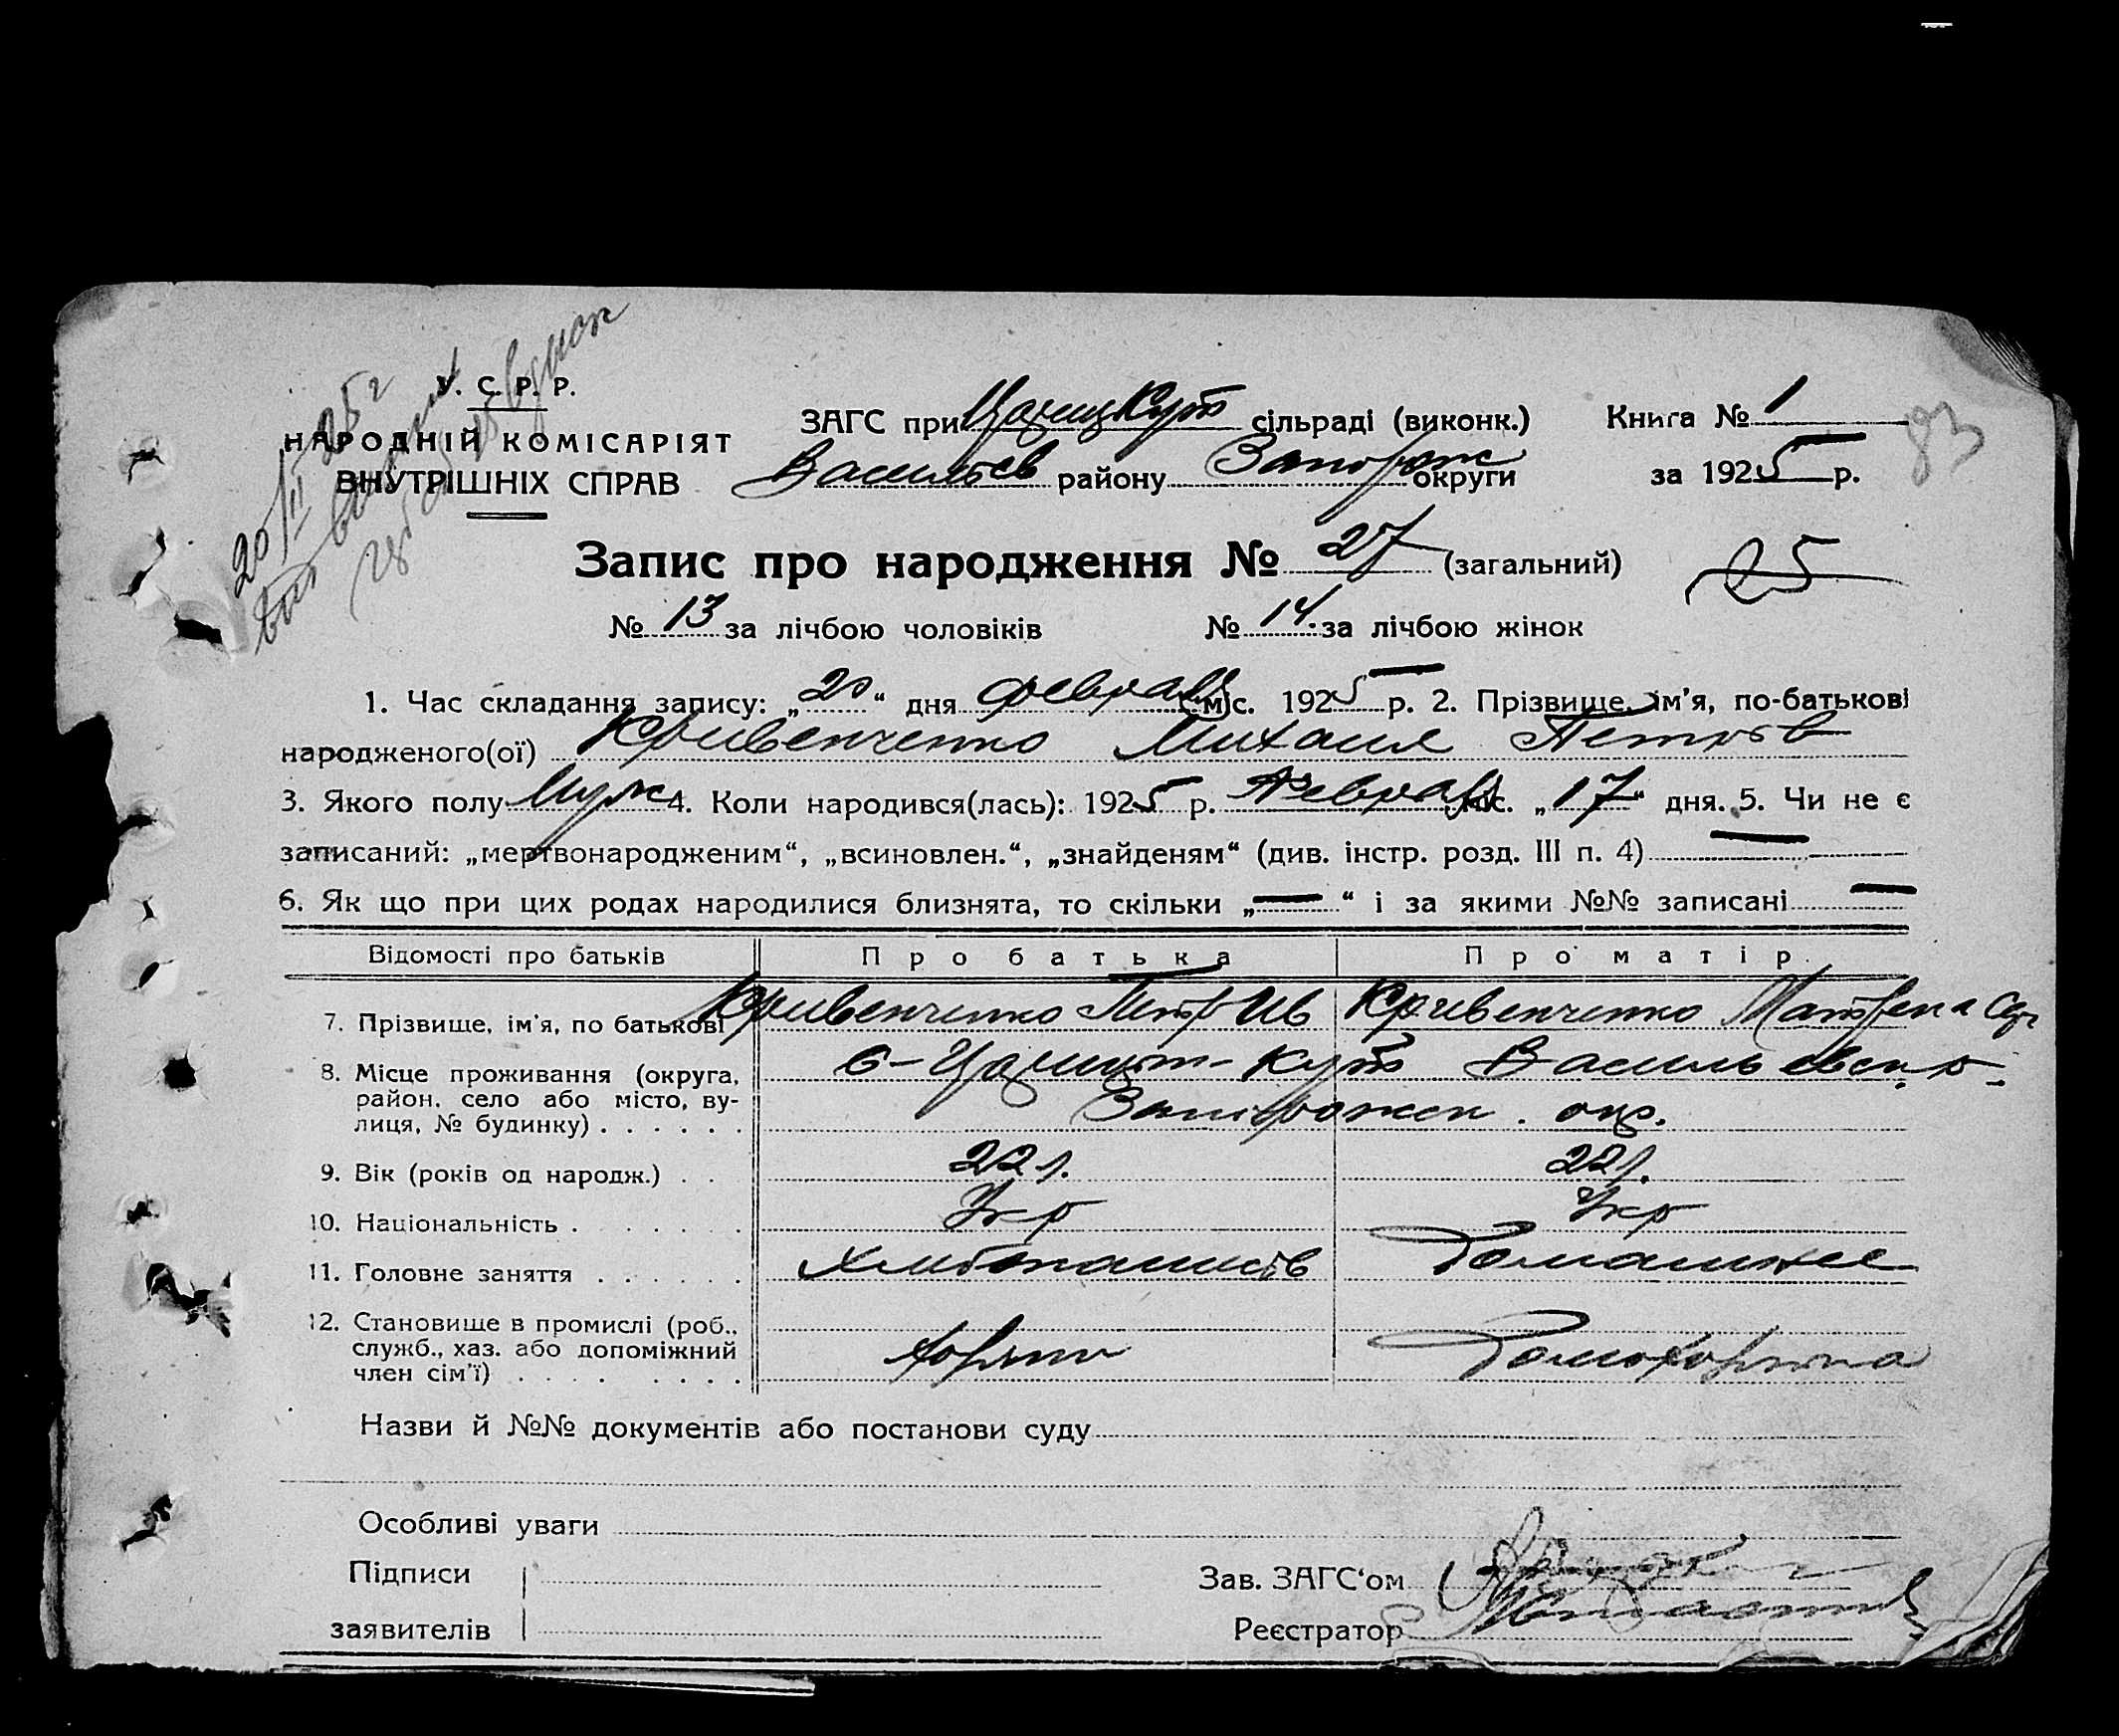 20/II 1925 г
У. С. Р. Р.
НАРОДНІЙ КОМІСАРІЯТ
ВНУТРІШНІХ СПРАВ
ЗАГС при Царицкут сільраді (виконк.) Книга № 1
Васильев району Запорож округи за 1925 р.
83
Запис про народження № 27 (загальний)
25
№ 13 за лічбою чоловіків № 14 за лічбою жінок
1. Час складання запису: „20“ дня февраля міс. 1925 р. 2. Прізвище, ім’я, по-батькові
народженого(ої) Кривенченко Михаил Петров
3. Якого полу Муж 4. Коли народився(лась): 1925 р. Февраля міс. „17“ дня. 5. Чи не є
записаний: „мертвонародженим“, „всиновлен.“, „знайденям“ (див. інстр. розд. III п. 4) —
6. Як що при цих родах народилися близнята, то скільки „—“ і за якими №№ записані —
Відомості про батьків Про батька Про матір.
7. Прізвище, ім’я, по батькові Кривенченко Петр Ив Кривенченко Матрена
8. Місце проживання (округа, район, село або місто, ву-
лиця, № будинку) . . . . . . с-Царицын-Кут Васильевск. р.
Запорожск. окр.
9. Вік (років од народж.) . . 22 г. 22 г.
10. Національність . . . . . . Укр Укр
11. Головне заняття . . . . . . Хлебопашців Домашнее
12. Становище в промислі (роб.,
служб., хаз. або допоміжний
член сім’ї) . . . . . . . . Хозяин Домохозяйка
Назви й №№ документів або постанови суду
Особливі уваги
Підписи
заявителів
Зав. ЗАГС‘ом
Реєстратор